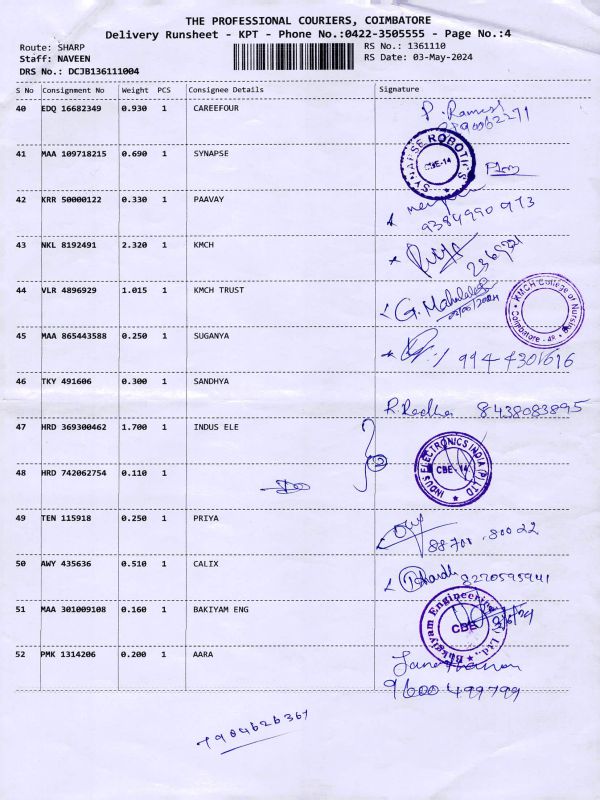 THE PROFESSIONAL COURIERS, COIMBATORE
Delivery Runsheet - KPT - Phone No.:0422-3505555 - Page No.:4
Route: SHARP RS No.: 1361110
Staff: NAVEEN RS Date: 03-May-2024
DRS No.: DCJB136111004
S No Consignment No Weight PCS Consignee Details Signature
40 EDQ 16682349 0.930 1 CAREEFOUR P. Ramesh
41 MAA 109718215 0.690 1 SYNAPSE SYNAPSE ROBOTICS CBE-14
42 KRR 50000122 0.330 1 PAAVAY 9384990973
43 NKL 8192491 2.320 1 KMCH
44 VLR 4896929 1.015 1 KMCH TRUST G. Mahalakshmi KMCH College of Nursing Coimbatore - 48
45 MAA 865443588 0.250 1 SUGANYA 9944301616
46 TKY 491606 0.300 1 SANDHYA R. Radha 8438083895
47 HRD 369300462 1.700 1 INDUS ELE 2 INDUS ELECTRONICS INDIA (P) LTD CBE-14
48 HRD 742062754 0.110 1
49 TEN 115918 0.250 1 PRIYA 88708.80022
50 AWY 435636 0.510 1 CALIX 8270595941
51 MAA 301009108 0.160 1 BAKIYAM ENG Bakgiyam Engineering Ltd., CBE
52 PMK 1314206 0.200 1 AARA Janarthanan
9600499799
7904626367